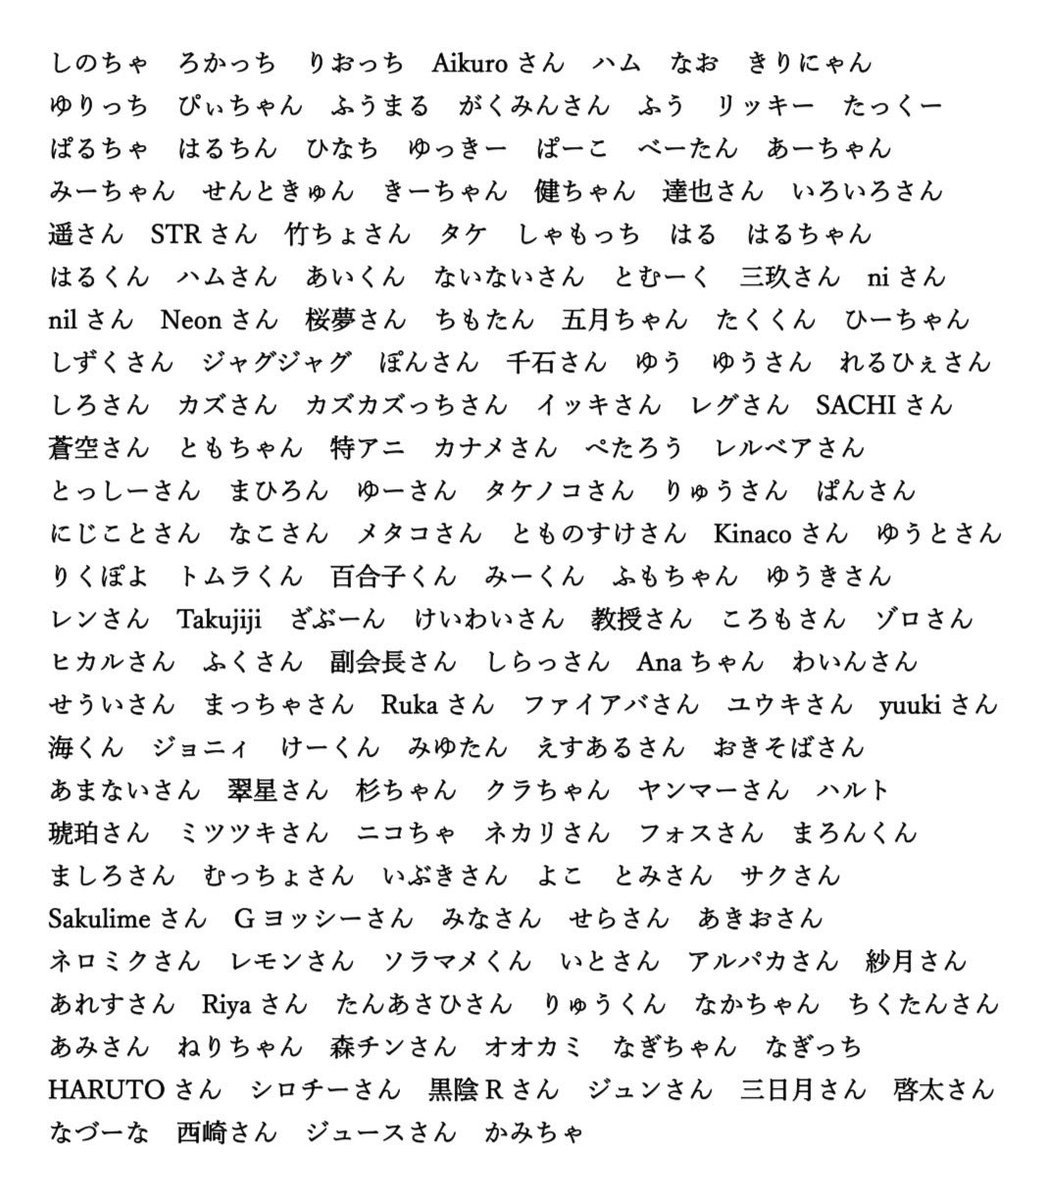 しのちゃ　ろかっち　りおっち　Aikuro さん　ハム　なお　きりにゃん
ゆりっち　ぴぃちゃん　ふうまる　がくみんさん　ふう　リッキー　たっくー
ぱるちゃ　はるちん　ひなち　ゆっきー　ぱーこ　べーたん　あーちゃん
みーちゃん　せんときゅん　きーちゃん　健ちゃん　達也さん　いろいろさん
遥さん　STR さん　竹ちょさん　タケ　しゃもっち　はる　はるちゃん
はるくん　ハムさん　あいくん　ないないさん　とむーく　三玖さん　ni さん
nil さん　Neon さん　桜夢さん　ちもたん　五月ちゃん　たくくん　ひーちゃん
しずくさん　ジャグジャグ　ぽんさん　千石さん　ゆう　ゆうさん　れるひぇさん
しろさん　カズさん　カズカズっちさん　イッキさん　レグさん　SACHI さん
蒼空さん　ともちゃん　特アニ　カナメさん　ぺたろう　レルベアさん
とっしーさん　まひろん　ゆーさん　タケノコさん　りゅうさん　ぱんさん
にじことさん　なこさん　メタコさん　とものすけさん　Kinaco さん　ゆうとさん
りくぽよ　トムラくん　百合子くん　みーくん　ふもちゃん　ゆうきさん
レンさん　Takujiji　ざぶーん　けいわいさん　教授さん　ころもさん　ゾロさん
ヒカルさん　ふくさん　副会長さん　しらっさん　Ana ちゃん　わいんさん
せういさん　まっちゃさん　Ruka さん　ファイアバさん　ユウキさん　yuuki さん
海くん　ジョニィ　けーくん　みゆたん　えすあるさん　おきそばさん
あまないさん　翠星さん　杉ちゃん　クラちゃん　ヤンマーさん　ハルト
琥珀さん　ミツツキさん　ニコちゃ　ネカリさん　フォスさん　まろんくん
ましろさん　むっちょさん　いぶきさん　よこ　とみさん　サクさん
Sakulime さん　G ヨッシーさん　みなさん　せらさん　あきおさん
ネロミクさん　レモンさん　ソラマメくん　いとさん　アルパカさん　紗月さん
あれすさん　Riya さん　たんあさひさん　りゅうくん　なかちゃん　ちくたんさん
あみさん　ねりちゃん　森チンさん　オオカミ　なぎちゃん　なぎっち
HARUTO さん　シロチーさん　黒陰 R さん　ジュンさん　三日月さん　啓太さん
なづーな　西崎さん　ジュースさん　かみちゃ